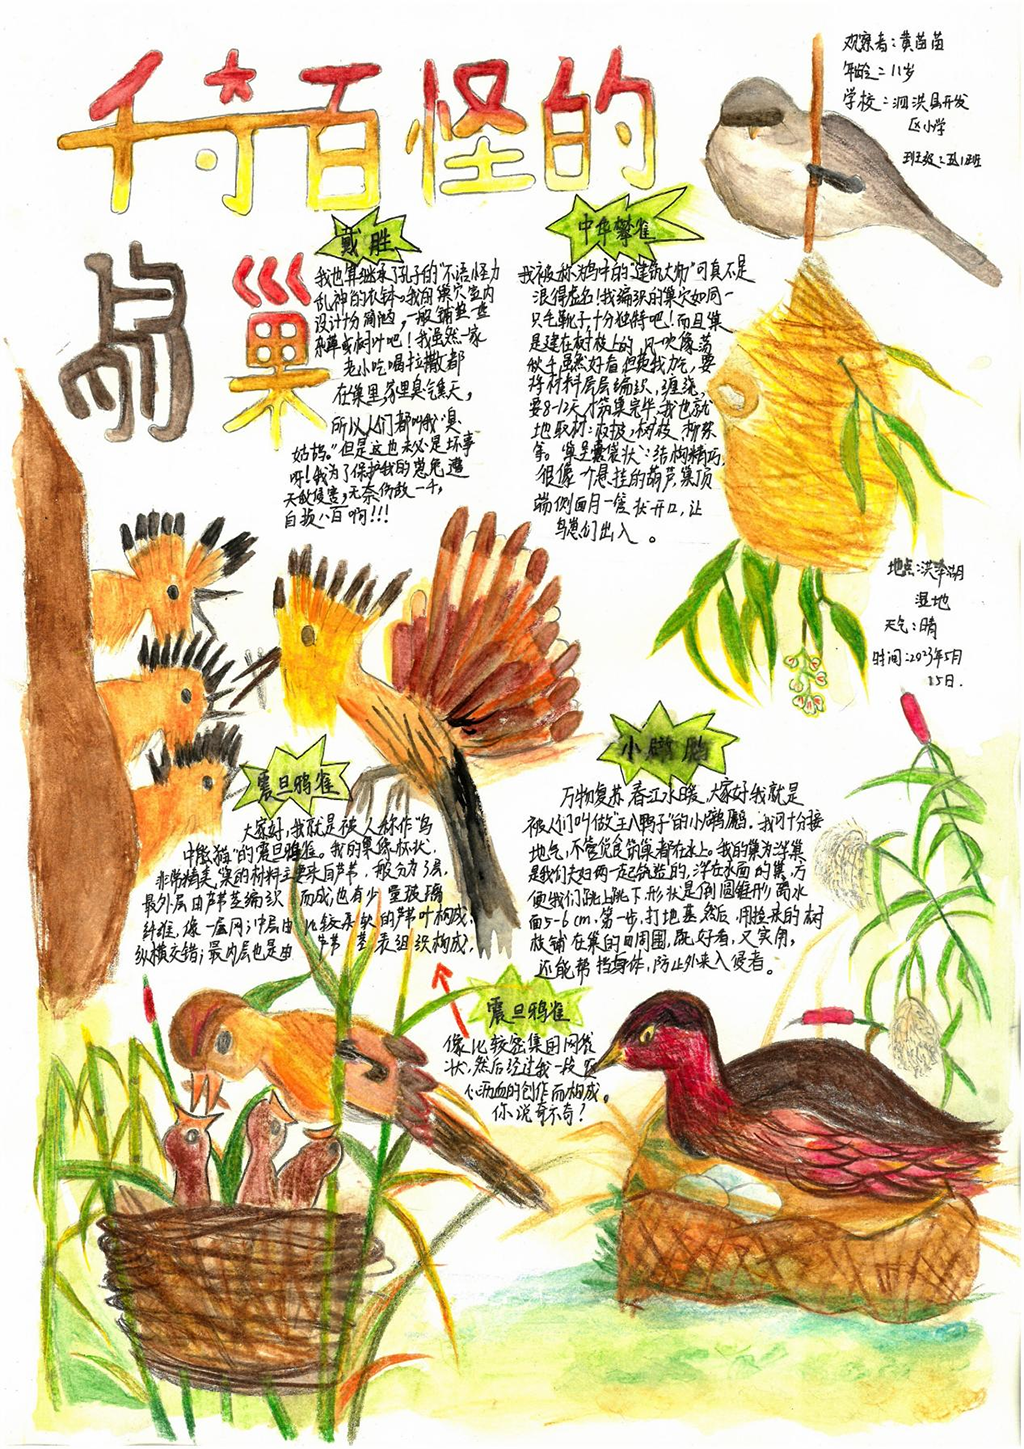 千奇百怪的
鸟巢
观察者：黄苗苗
年龄：11岁
学校：泗洪县开发
区小学
班级：五1班
戴胜
我也算继承了孔子的“不语怪力
乱神的衣钵。我的巢穴室内
设计十分简陋，一般铺垫一些
杂草或树叶吧！我虽然一家
老小吃喝拉撒都
在巢里，家里臭气熏天，
所以人们都叫我“臭
姑鸪。”但是这也未必是坏事
呀！我为了保护我的崽免遭
天敌侵害，无奈伤敌一千，
自损八百啊!!!
中华攀雀
我被称为鸟中的“建筑大师”可真不是
浪得虚名！我编织的巢穴如同一
只毛靴子，十分独特吧！而且巢
是建在树枝上的，风一吹像荡
秋千，虽然好看，但费我力气，要
将材料层层编织，缠绕，
要8-12天才筑巢完毕，我也就
地取材：树枝、
等。巢是囊袋状，结构精巧，
很像一个悬挂的葫芦，巢顶
端侧面月一管状开口，让
鸟崽们出入。
地点：洪泽湖
湿地
天气：晴
时间：2023年5月
15日．
震旦鸦雀
大家好，我就是被人称作“鸟
中熊猫”的震旦鸦雀。我的巢像杯状，
非常精美，巢的材料主要来自芦苇，一般分为3层，
最外层由芦苇茎编织而成，也有少量玻璃
纤维，像一层网；中层由比较柔软的芦苇叶构成，
纵横交错；最内层也是由芦苇茎表组织构成，
小䴙䴘
万物复苏，春江水暖，大家好，我就是
被人们叫做“王八鸭子”的小䴙䴘，我可十分接
地气，不管觅食、筑巢都在水上。我的巢为浮巢
是我们夫妇俩一起筑造的，浮在水面的巢，方
便我们跳上跳下，形状是倒圆锥形，离水
面5-6cm．第一步，打地基，然后，用捡来的树
枝铺在巢的四周围，既好看，又实用，
还能帮挡身体，防止外来入侵者。
震旦鸦雀
像比较密集困网袋
状，然后经过我一段呕
心沥血的创作而构成。
你说奇不奇？